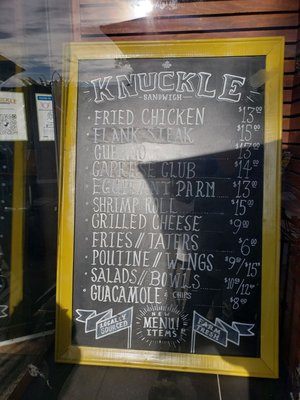 KNUCKLE
SANDWICH
FRIED CHICKEN $13.00
FLANK STEAK $15.00
CUBANO $13.00
CAPRESE CLUB $14.00
EGGPLANT PARM $13.00
SHRIMP ROLL $15.00
GRILLED CHEESE $9.00
FRIES // TATERS $6.00
POUTINE // WINGS $9.00/$15
SALADS // BOWLS
GUACAMOLE & CHIPS $8.00
LOCALLY SOURCED
NEW MENU ITEMS
FARM FRESH